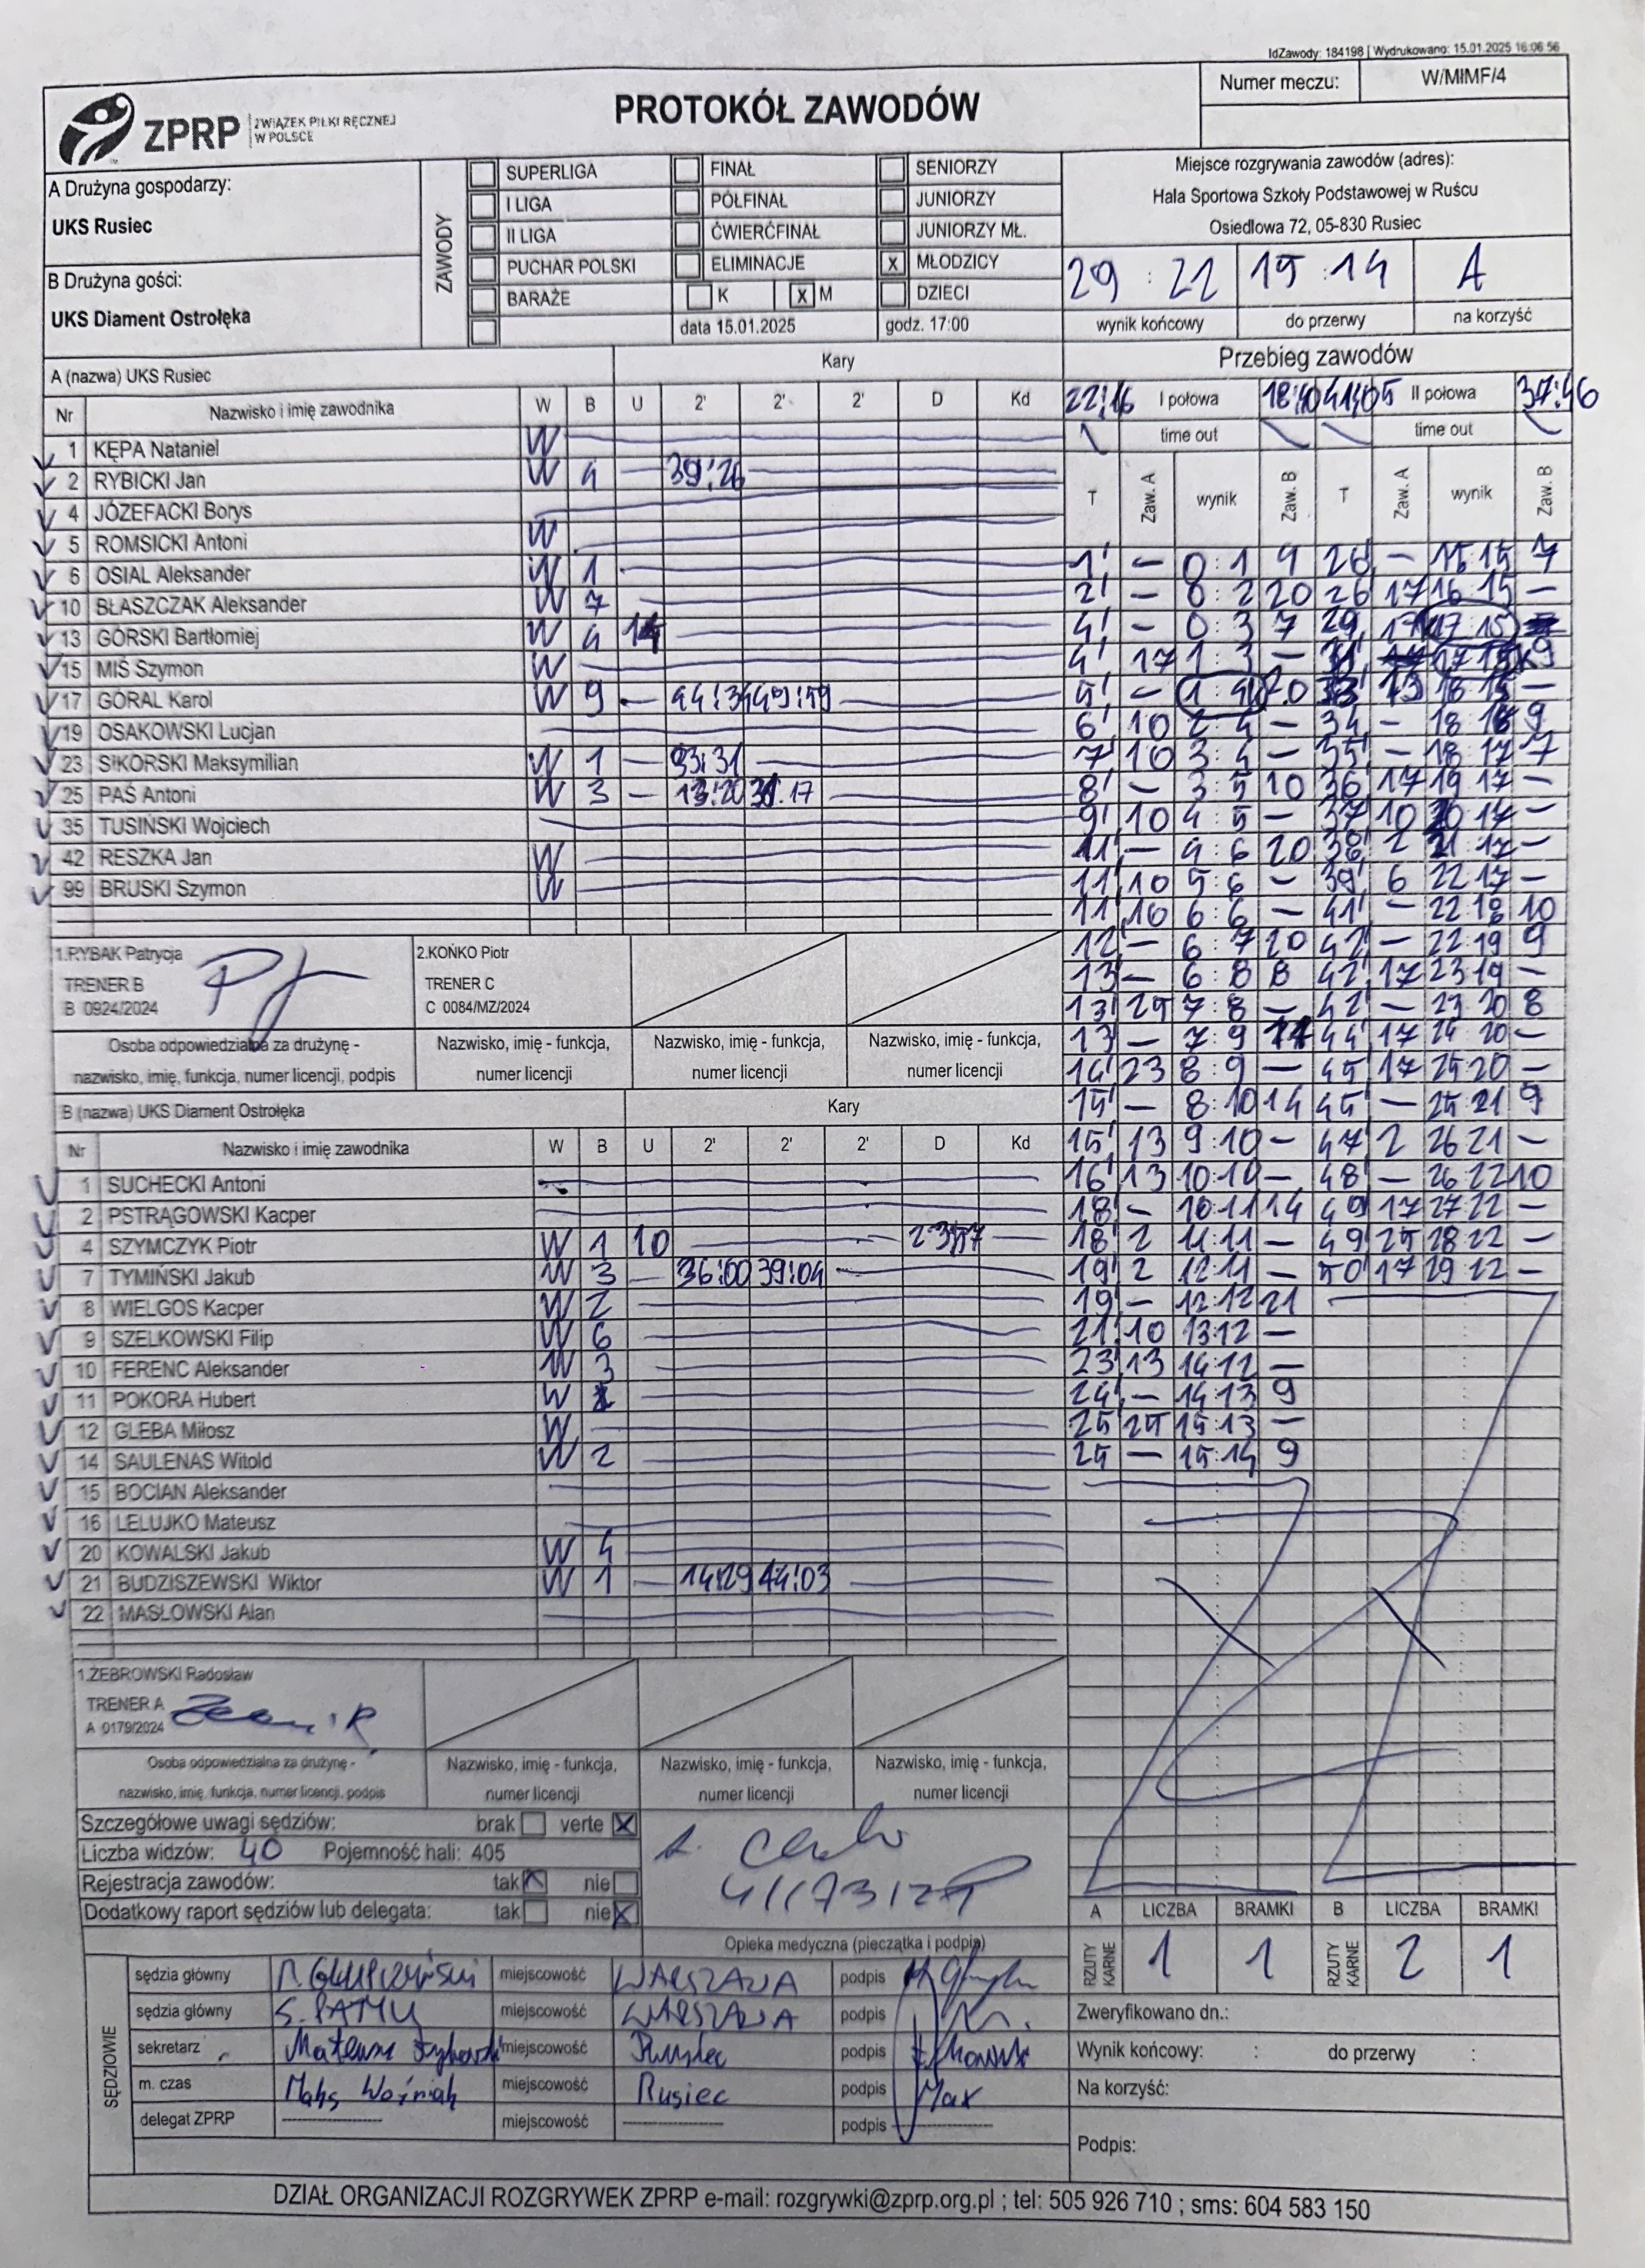 IdZawody: 184198 | Wydrukowano: 15.01.2025 16:06:56
Numer meczu: W/MIMF/4
ZPRP ZWIĄZEK PIŁKI RĘCZNEJ W POLSCE
PROTOKÓŁ ZAWODÓW
A Drużyna gospodarzy:
UKS Rusiec
B Drużyna gości:
UKS Diament Ostrołęka
ZAWODY
SUPERLIGA FINAŁ SENIORZY
I LIGA PÓŁFINAŁ JUNIORZY
II LIGA ĆWIERĆFINAŁ JUNIORZY MŁ.
PUCHAR POLSKI ELIMINACJE x MŁODZICY
BARAŻE K x M DZIECI
data 15.01.2025 godz. 17:00
Miejsce rozgrywania zawodów (adres):
Hala Sportowa Szkoły Podstawowej w Ruścu
Osiedlowa 72, 05-830 Rusiec
29 : 22 15 : 14 A
wynik końcowy do przerwy na korzyść
A (nazwa) UKS Rusiec Kary
Nr Nazwisko i imię zawodnika W B U 2' 2' 2' D Kd
1 KĘPA Nataniel W
2 RYBICKI Jan W 4 39:26
4 JÓZEFACKI Borys
5 ROMSICKI Antoni W
6 OSIAL Aleksander W 1
10 BŁASZCZAK Aleksander W 7
13 GÓRSKI Bartłomiej W 4
15 MIŚ Szymon W
17 GÓRAL Karol W 9 44:34 49:59
19 OSAKOWSKI Lucjan
23 SIKORSKI Maksymilian W 1 33:31
25 PAŚ Antoni W 3 13:20 31:17
35 TUSIŃSKI Wojciech
42 RESZKA Jan W
99 BRUSKI Szymon W
1.RYBAK Patrycja 2.KOŃKO Piotr
TRENER B TRENER C
B 0924/2024 C 0084/MZ/2024
Osoba odpowiedzialna za drużynę - Nazwisko, imię - funkcja, Nazwisko, imię - funkcja, Nazwisko, imię - funkcja,
nazwisko, imię, funkcja, numer licencji, podpis numer licencji numer licencji numer licencji
B (nazwa) UKS Diament Ostrołęka Kary
Nr Nazwisko i imię zawodnika W B U 2' 2' 2' D Kd
1 SUCHECKI Antoni
2 PSTRĄGOWSKI Kacper
4 SZYMCZYK Piotr W 1 10 23:57
7 TYMIŃSKI Jakub W 3 36:00 39:04
8 WIELGOS Kacper W 2
9 SZELKOWSKI Filip W 6
10 FERENC Aleksander W 3
11 POKORA Hubert W
12 GLEBA Miłosz W
14 SAULENAS Witold W 2
15 BOCIAN Aleksander
16 LELUJKO Mateusz
20 KOWALSKI Jakub W 4
21 BUDZISZEWSKI Wiktor W 1 14:29 44:03
22 MASŁOWSKI Alan
1.ŻEBROWSKI Radosław
TRENER A
A 0179/2024
Osoba odpowiedzialna za drużynę - Nazwisko, imię - funkcja, Nazwisko, imię - funkcja, Nazwisko, imię - funkcja,
nazwisko, imię, funkcja, numer licencji, podpis numer licencji numer licencji numer licencji
Szczegółowe uwagi sędziów: brak verte X
Liczba widzów: 40 Pojemność hali: 405
Rejestracja zawodów: tak X nie
Dodatkowy raport sędziów lub delegata: tak nie X
Opieka medyczna (pieczątka i podpis)
SĘDZIOWIE
sędzia główny miejscowość WARSZAWA podpis
sędzia główny miejscowość WARSZAWA podpis
sekretarz Mateusz miejscowość Rusiec podpis
m. czas Maks Woźniak miejscowość Rusiec podpis Max
delegat ZPRP miejscowość podpis
Przebieg zawodów
22:16 I połowa 41:05 II połowa 37:46
time out time out
T Zaw. A wynik Zaw. B T Zaw. A wynik Zaw. B
1' – 0:1 9 26 – 15:15 7
2' – 0:2 20 26 17 16:15 –
4' – 0:3 7 29 17 17:15
4' 17 1:3 –
5' – 1:4 20 33 13 18:15 –
6' 10 2:4 – 34 – 18:16 9
7' 10 3:4 – 35 – 18:17 7
8' – 3:5 10 36 17 19:17 –
9' 10 4:5 – 37 10 20:17 –
11' – 4:6 20 38 2 21:17 –
11 10 5:6 – 39 6 22:17 –
11 10 6:6 – 41 – 22:18 10
12 – 6:7 20 42 – 22:19 9
13 – 6:8 8 42 17 23:19 –
13 25 7:8 – 42 – 23:20 8
13 – 7:9 11 44 17 24:20 –
14 23 8:9 – 45 17 25:20 –
15 – 8:10 14 45 – 25:21 9
15 13 9:10 – 47 2 26:21 –
16 13 10:10 – 48 – 26:22 10
18 – 10:11 14 49 17 27:22 –
18 2 11:11 – 49 25 28:22 –
19 2 12:11 – 50 17 29:22 –
19 – 12:12 21
21 10 13:12 –
23 13 14:12 –
24 – 14:13 9
25 25 15:13 –
25 – 15:14 9
A LICZBA BRAMKI B LICZBA BRAMKI
RZUTY KARNE 1 1 RZUTY KARNE 2 1
Zweryfikowano dn.:
Wynik końcowy: : do przerwy :
Na korzyść:
Podpis:
DZIAŁ ORGANIZACJI ROZGRYWEK ZPRP e-mail: rozgrywki@zprp.org.pl ; tel: 505 926 710 ; sms: 604 583 150